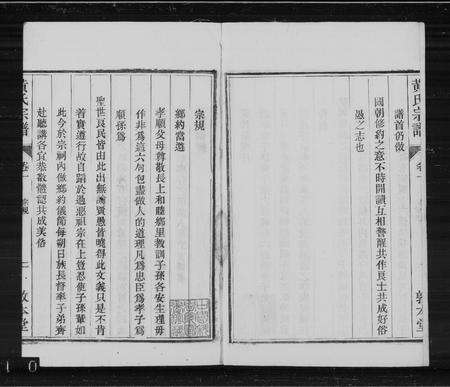 黃氏宗譜
卷一
敦本堂
譜首仍倣
國朝修約之意不時開讀互相警醒共作良士共成好俗
愚之志也
宗規
鄉約當遵
孝順父母尊敬長上和睦鄉里教訓子孫各安生理毋
作非為這六句包盡做人的道理凡為忠臣為孝子為
順孫為
聖世良民皆由此出無論賢愚皆曉得此文義只是不肯
著實遵行故自陷於過惡祖宗在上豈忍使子孫輩如
此今於宗祠內倣鄉約儀節每朔日族長督率子弟齊
赴聽講各宜恭敬體認共成美俗
黃氏宗譜
卷一
宗規
敦本堂